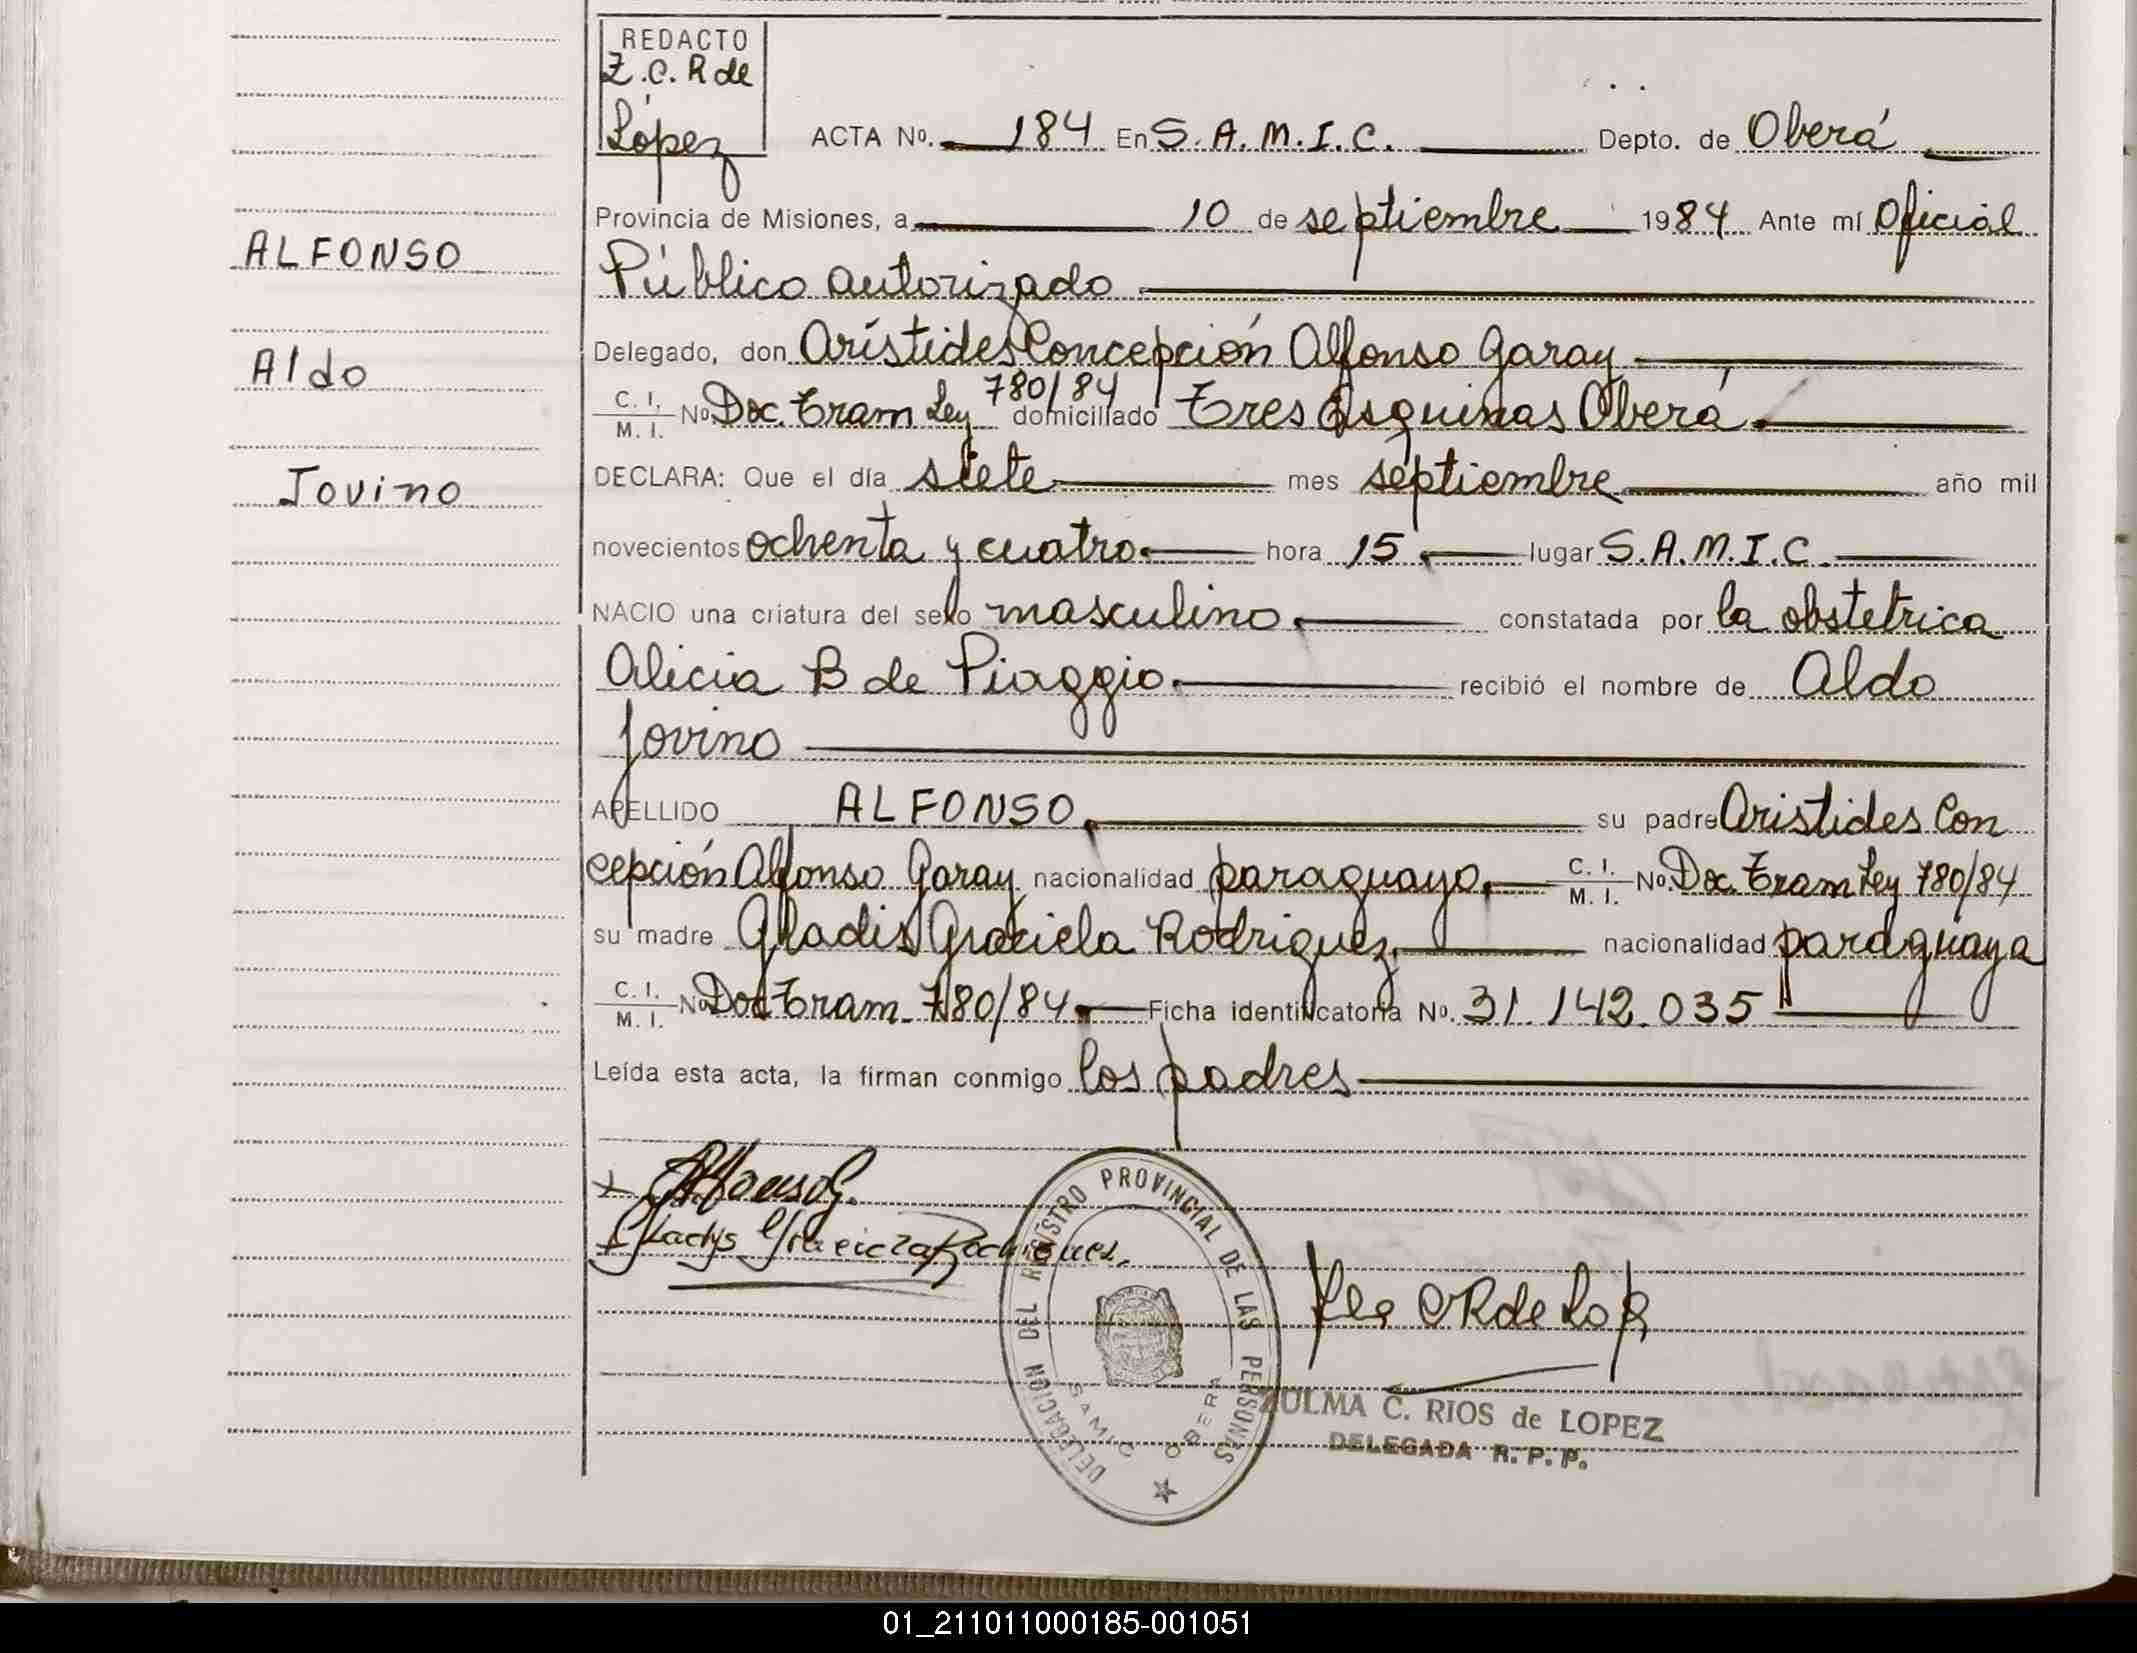 REDACTO
Z.C. R de
López
ACTA Nº. 184 En S.A.M.I.C. Depto. de Oberá
Provincia de Misiones, a 10 de septiembre 1984 Ante mí Oficial
Público autorizado
Delegado, don Arístides Concepción Alfonso Garay
C. I. M. I. Nº Doc. Tram Ley 780/84 domiciliado Tres Esquinas Oberá.
DECLARA: Que el día siete mes septiembre año mil
novecientos ochenta y cuatro hora 15 lugar S.A.M.I.C.
NACIO una criatura del sexo masculino. constatada por la obstetrica
Alicia B de Piaggio. recibió el nombre de Aldo
Jovino
APELLIDO ALFONSO su padre Aristides Con
cepción Alfonso Garay nacionalidad paraguayo. C. I. M. I. Nº. Doc. Tram Ley 780/84
su madre Gladis Graciela Rodriguez. nacionalidad paraguaya
C. I. M. I. Nº Doc Tram 780/84 Ficha identificatoria Nº. 31.142.035
Leída esta acta, la firman conmigo los padres
ALFONSO
Aldo
Jovino
Alfonso G.
Gladys Graciela Rodriguez.
DELEGACION DEL REGISTRO PROVINCIAL DE LAS PERSONAS
SAMIC OBERA
ZULMA C. RIOS de LOPEZ
DELEGADA R. P. P.
01_211011000185-001051